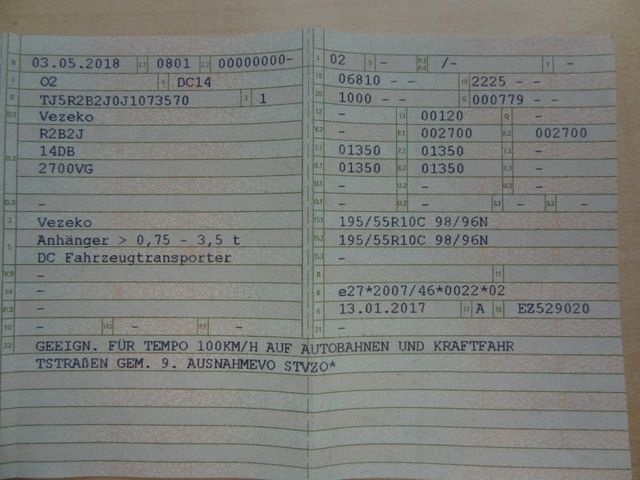 B 03.05.2018 2.1 0801 2.2 00000000-
J O2 4 DC14
E TJ5R2B2J0J1073570 3 1
D.1 Vezeko
R2B2J
D.2 14DB
2700VG
D.3 -
2 Vezeko
5 Anhänger > 0,75 - 3,5 t
DC Fahrzeugtransporter
V.9 -
14 -
P.3 -
10 - 14.1 - P.1 -
22 GEEIGN. FÜR TEMPO 100KM/H AUF AUTOBAHNEN UND KRAFTFAHR
TSTRAßEN GEM. 9. AUSNAHMEVO STVZO*
L 02 9 - P.2 P.4 /- T -
18 06810 - - 19 2225 - -
20 1000 - - G 000779 - -
12 - 13 00120 Q -
V.7 - F.1 002700 F.2 002700
7.1 01350 7.2 01350 7.3 -
8.1 01350 8.2 01350 8.3 -
U.1 - U.2 - U.3 -
O.1 - O.2 - S.1 - S.2 -
15.1 195/55R10C 98/96N
15.2 195/55R10C 98/96N
15.3 -
R 11
K e27*2007/46*0022*02
6 13.01.2017 17 A 16 EZ529020
21 -